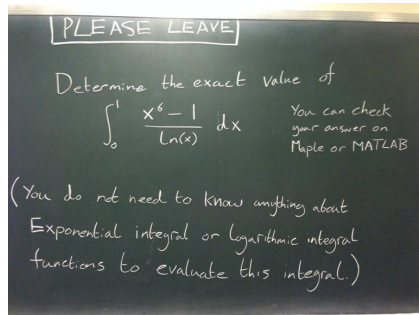 PLEASE LEAVE
Determine the exact value of
∫₀¹ (x⁶ − 1)/Ln(x) dx
You can check
your answer on
Maple or MATLAB
(You do not need to know anything about
Exponential integral or Logarithmic integral
functions to evaluate this integral.)